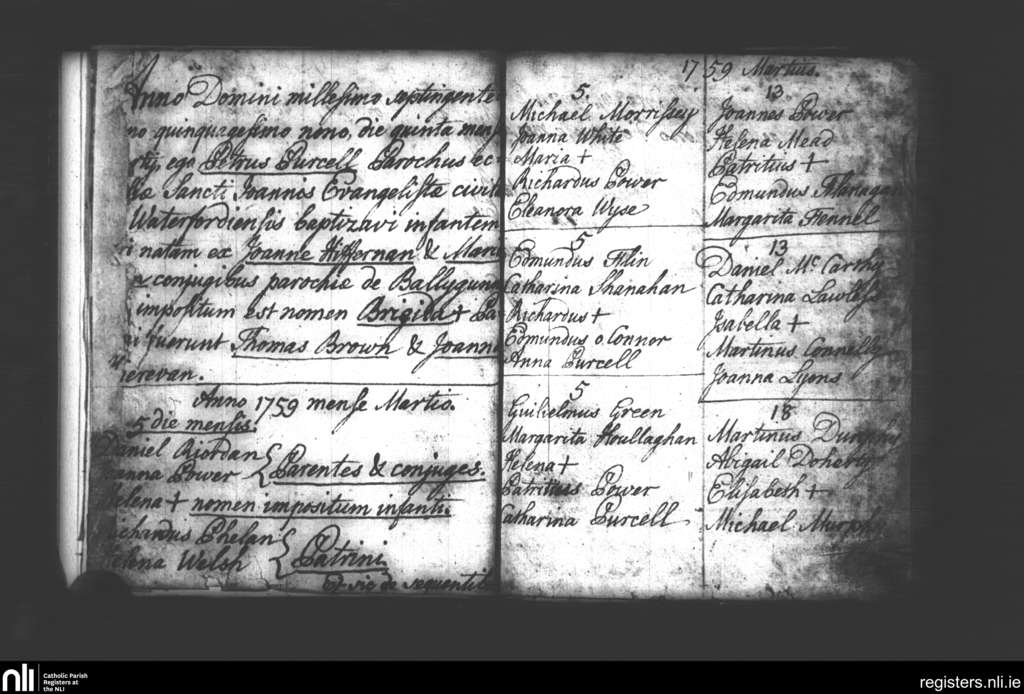 Anno Domini millesimo septingente
no quinquagesimo nono, die quinta mens
rtij, ego Petrus Purcell Parochus ec
iæ Sancti Joannis Evangelistæ civit
Waterfordiensis baptizavi infantem
ri natam ex Joanne Hiffernan & Mari
conjugibus parochiæ de Ballyguna
impositum est nomen Brigida + Pa
ni fuerunt Thomas Brown & Joanna
Kerevan.
Anno 1759 mense Martio.
5 die mensis.
Daniel Riordan
Joanna Power
Parentes & conjuges.
Helena + nomen impositum infanti.
Richardus Phelan
Helena Welsh
Patrini
Et sic de sequenti
5.
Michael Morrissey
Joanna White
Maria +
Richardus Power
Eleanora Wyse
5
Edmundus Flin
Catharina Shanahan
Richardus +
Edmundus o Connor
Anna Purcell
5
Guilielmus Green
Margarita Houllaghan
Helena +
Patritius Power
Catharina Purcell
1759 Martius.
13
Joannes Power
Helena Mead
Patritius +
Edmundus Flanagan
Margarita Fennel
13
Daniel Mc Carthy
Catharina Lawless
Isabella +
Martinus Connelly
Joanna Lyons
18
Martinus Dunphy
Abigail Doherty
Elisabeth +
Michael Murphy
nli
Catholic Parish
Registers at
the NLI
registers.nli.ie